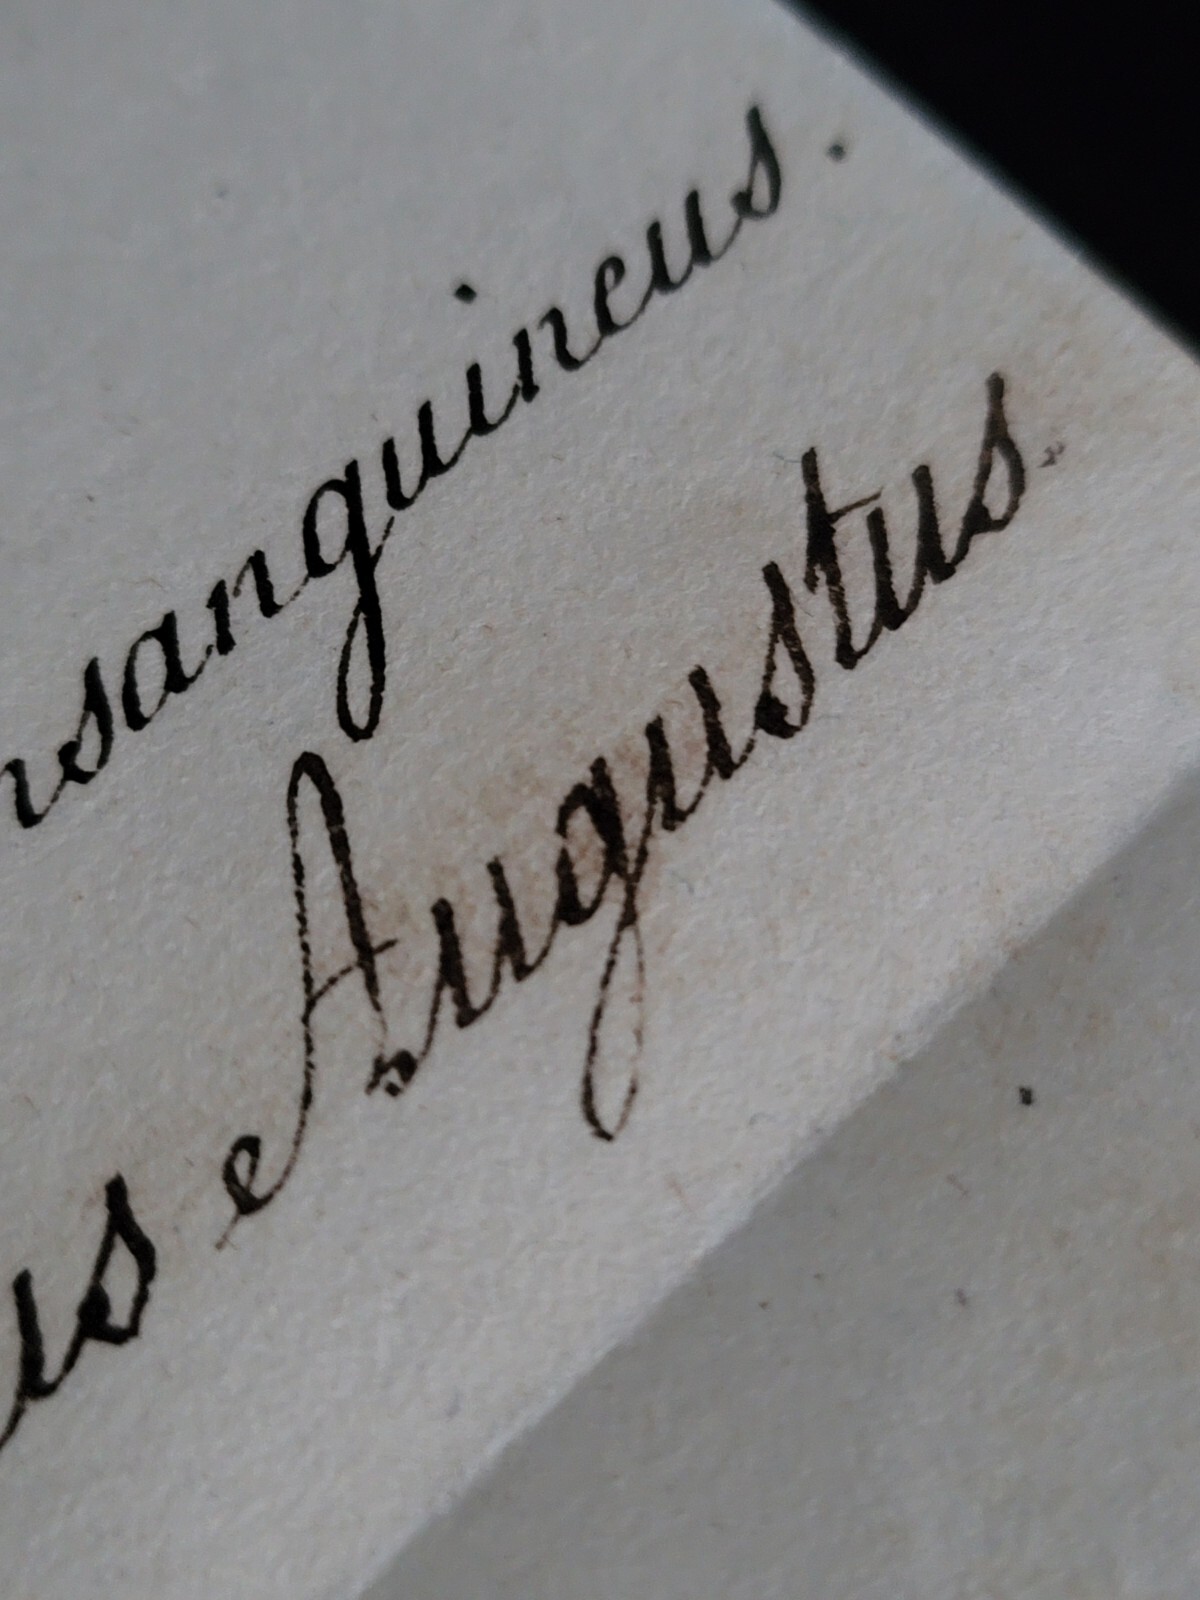 nsanguineus.
us Augustus.